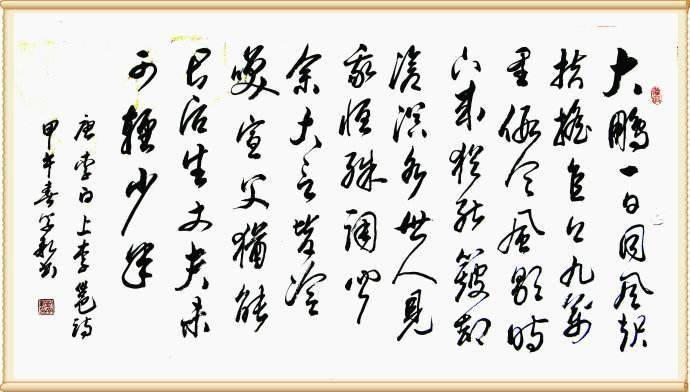 大鹏一日同风起
扶摇直上九萬
里假令风歇时
下来犹能簸却
沧溟水世人见
我恒殊调闻
余大言皆冷
笑宣父猶能
畏后生丈夫未
可轻少年
唐李白上李邕诗
甲午春